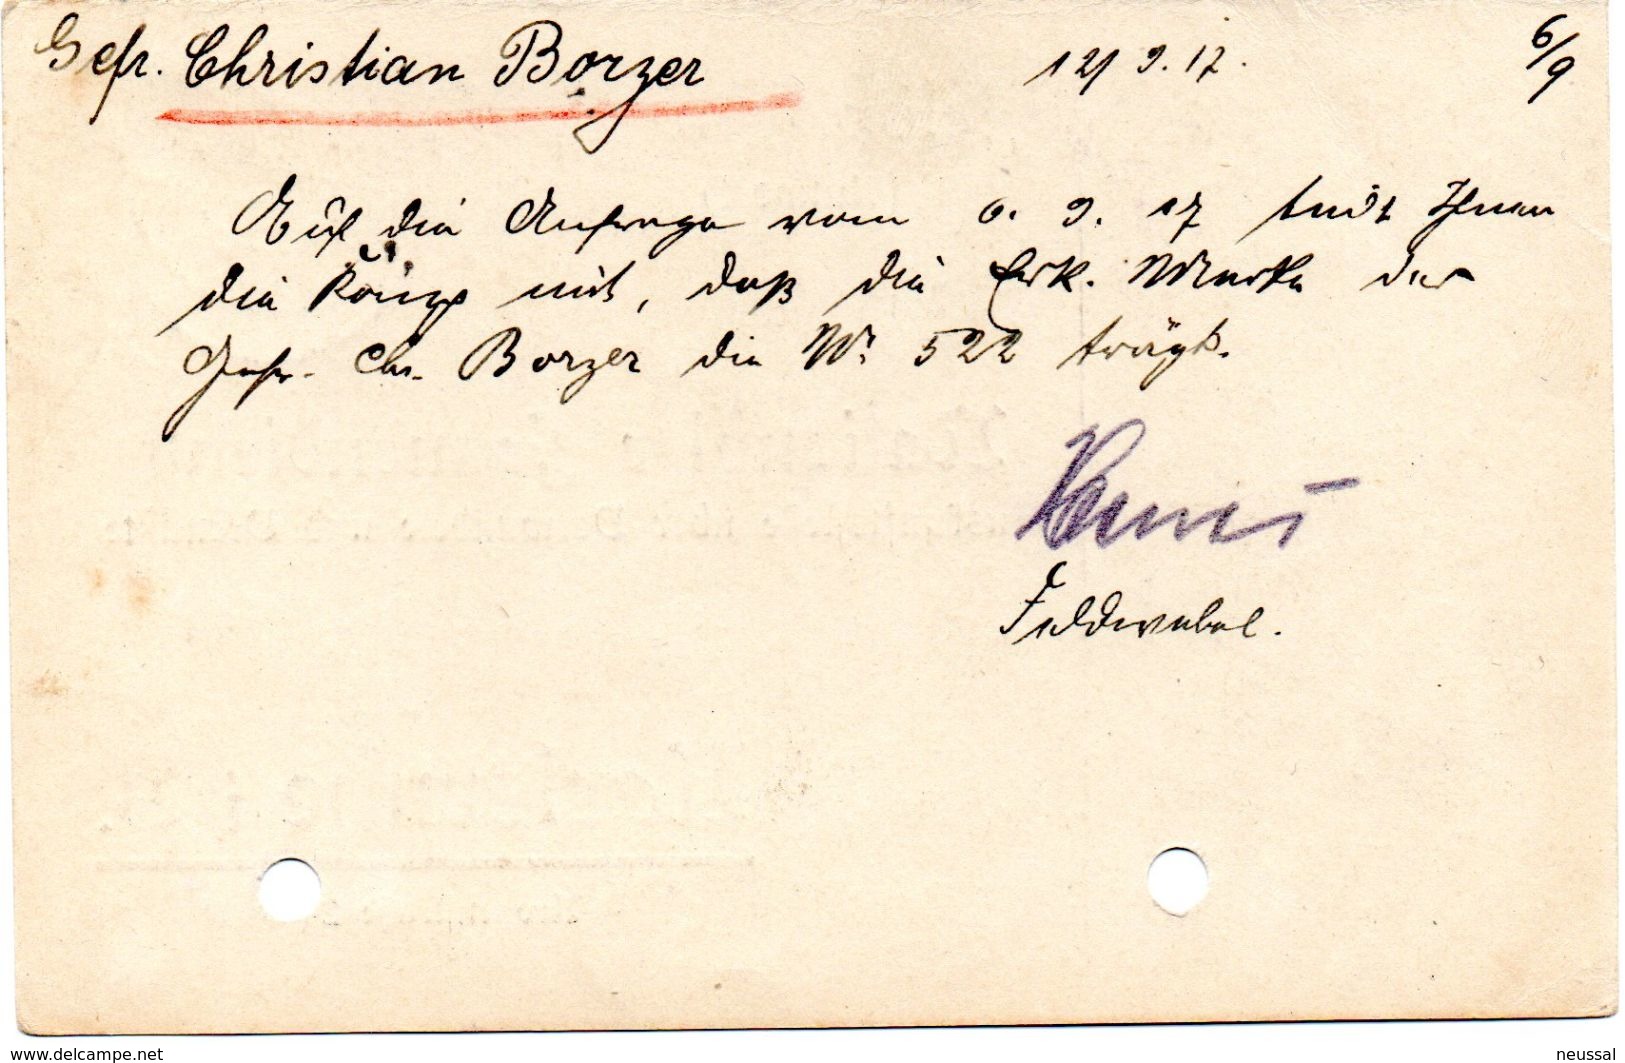 Gefr. Christian Borzer 12/9.17. 6/9
Auf die Anfrage vom 6. 9. 17 teilt Ihnen
die Komp mit, daß die Erk. Marke des
Gefr. Chr. Borzer die Nr. 522 trägt.
Feldwebel.
www.delcampe.net neussal